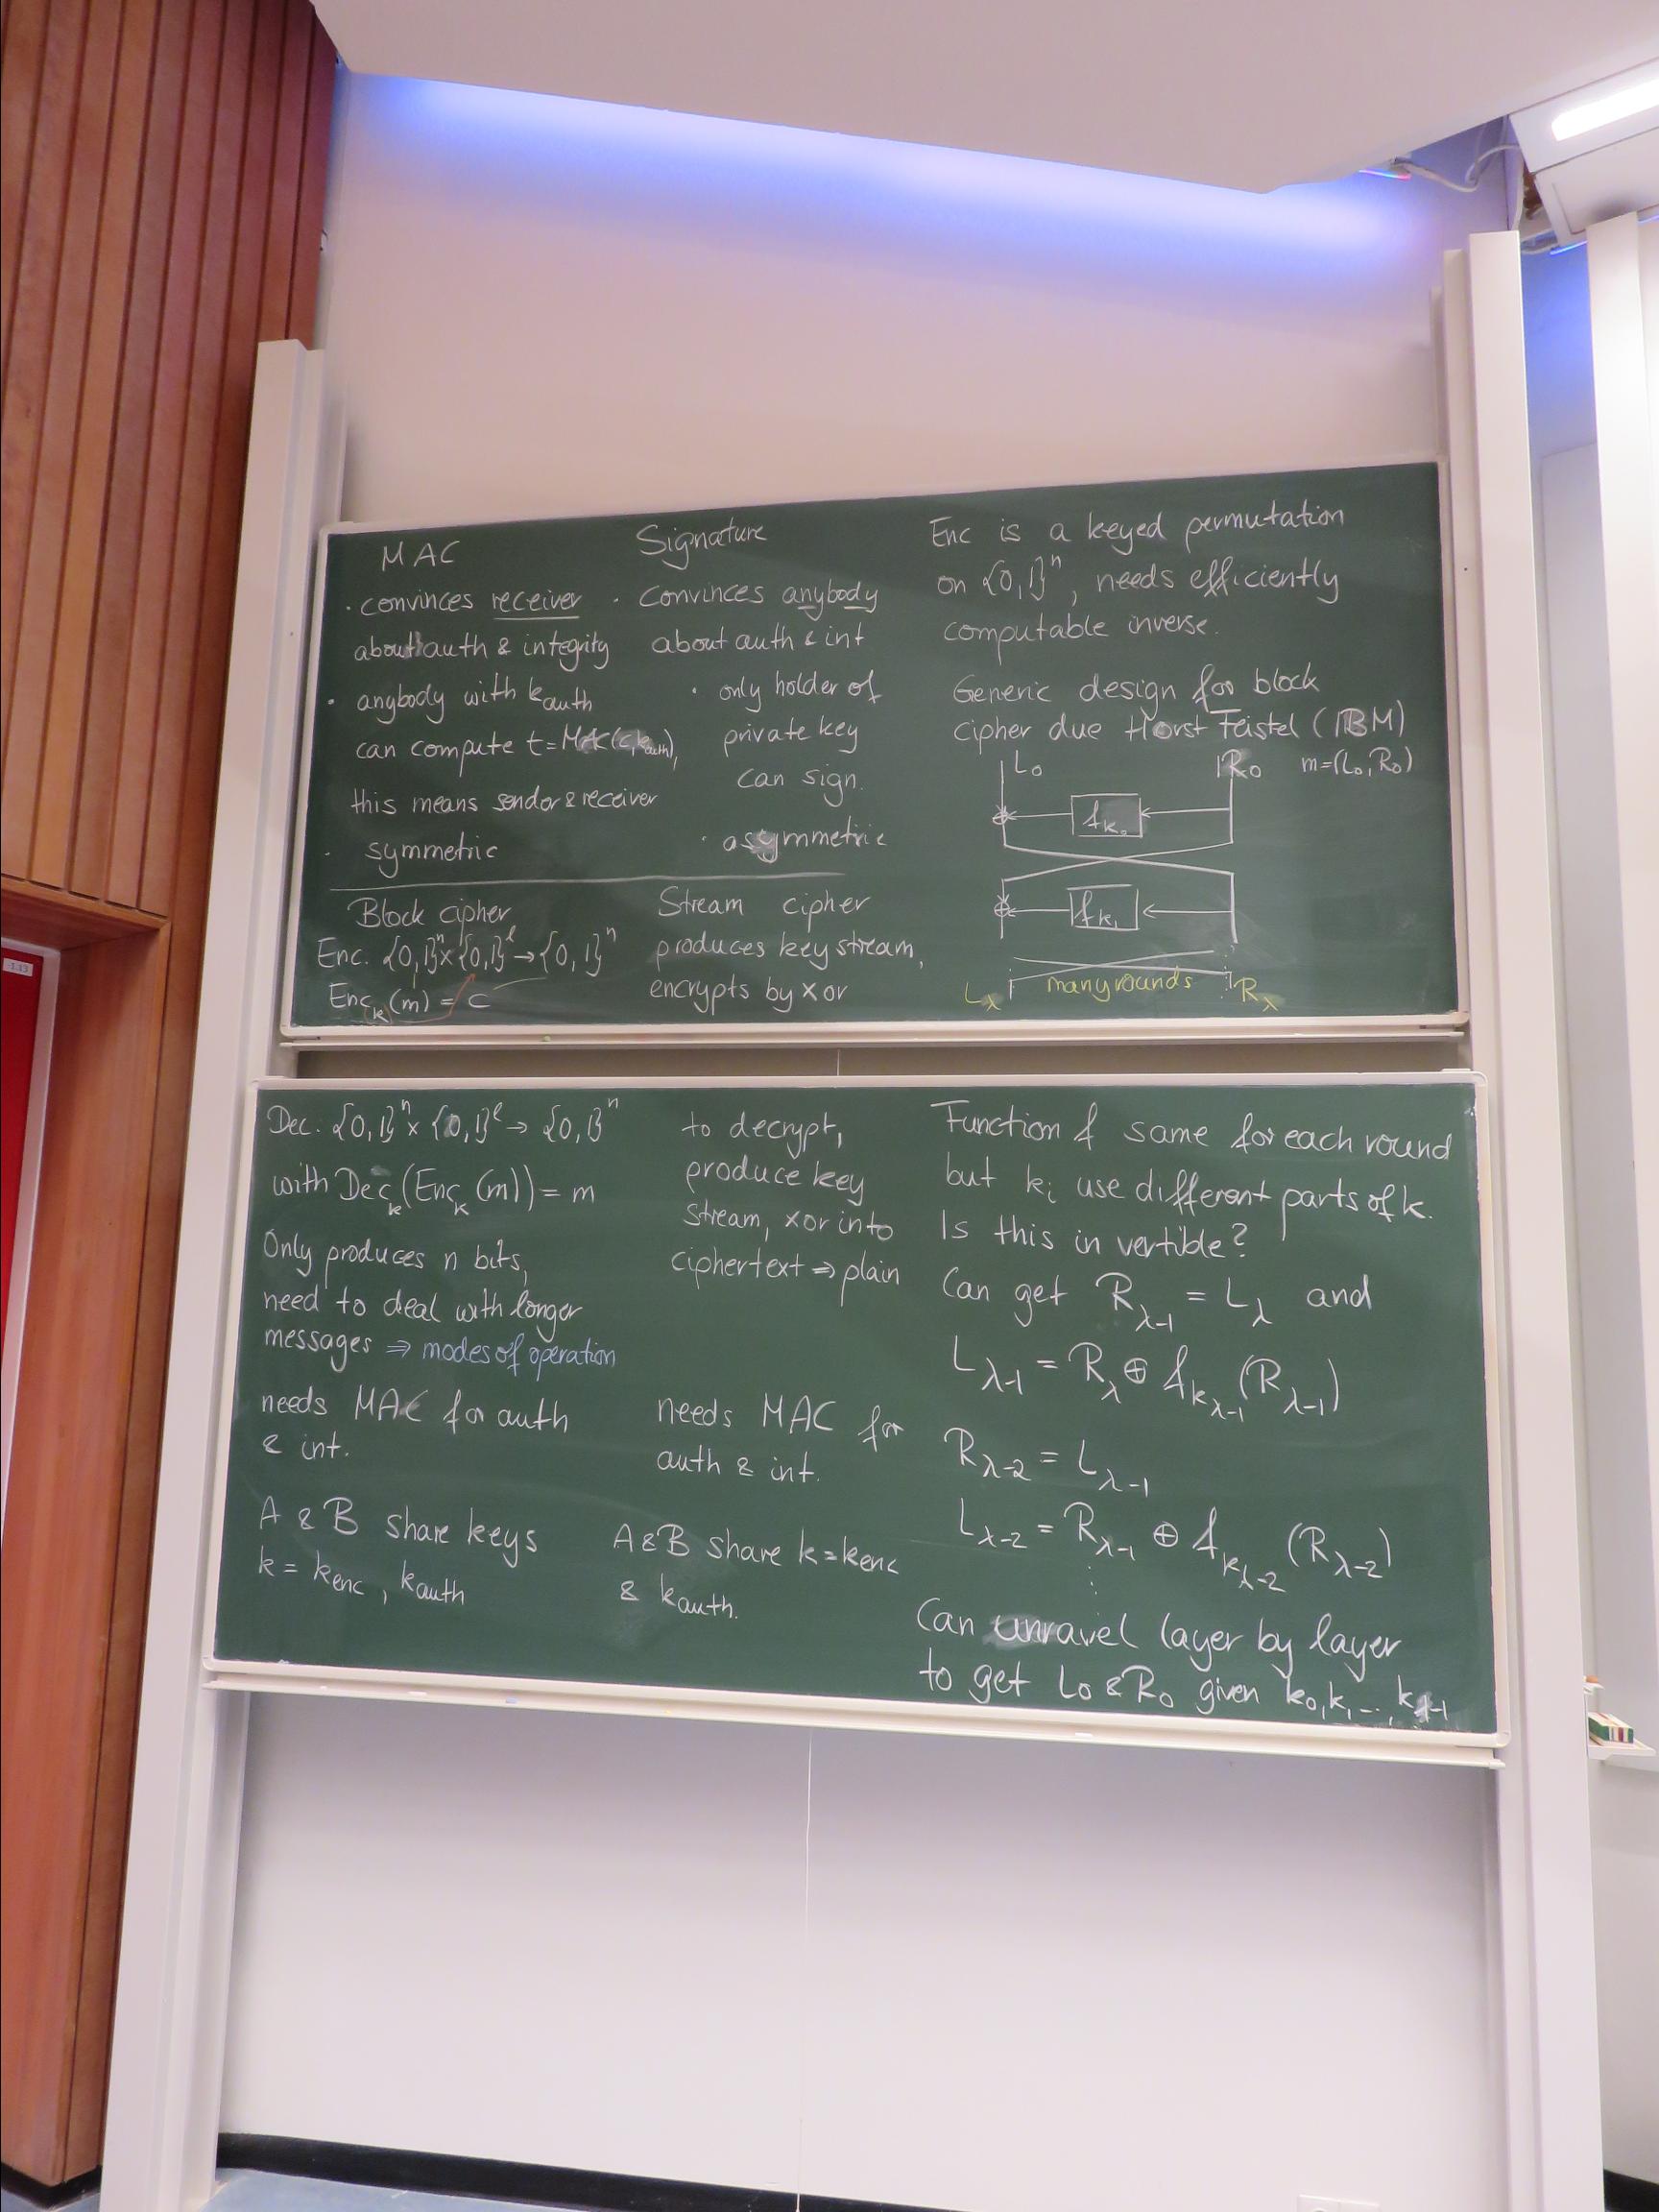 MAC
· convinces receiver
about auth & integrity
· anybody with k_auth
can compute t=MAC(c,k_auth),
this means sendor & receiver
· symmetric
Signature
· Convinces anybody
about auth & int
· only holder of
private key
can sign.
· asymmetric
Block cipher
Enc. {0,1}^n × {0,1}^ℓ → {0,1}^n
Enc_k(m) = c
Stream cipher
produces key stream,
encrypts by xor
Enc is a keyed permutation
on {0,1}^n, needs efficiently
computable inverse.
Generic design for block
cipher due Horst Feistel (IBM)
L_0 R_0 m=(L_0, R_0)
f_k_0
f_k_1
L_λ many rounds R_λ
Dec. {0,1}^n × {0,1}^ℓ → {0,1}^n
with Dec_k(Enc_k(m)) = m
Only produces n bits,
need to deal with longer
messages ⇒ modes of operation
needs MAC for auth
& int.
A & B share keys
k = k_enc, k_auth
to decrypt,
produce key
stream, xor into
ciphertext ⇒ plain
needs MAC for
auth & int.
A&B share k=k_enc
& k_auth.
Function f same for each round
but k_i use different parts of k.
Is this in vertible?
Can get R_λ-1 = L_λ and
L_λ-1 = R_λ ⊕ f_k_λ-1(R_λ-1)
R_λ-2 = L_λ-1
L_λ-2 = R_λ-1 ⊕ f_k_λ-2(R_λ-2)
⋮
Can unravel layer by layer
to get L_0 & R_0 given k_0,k_1...,k_λ-1